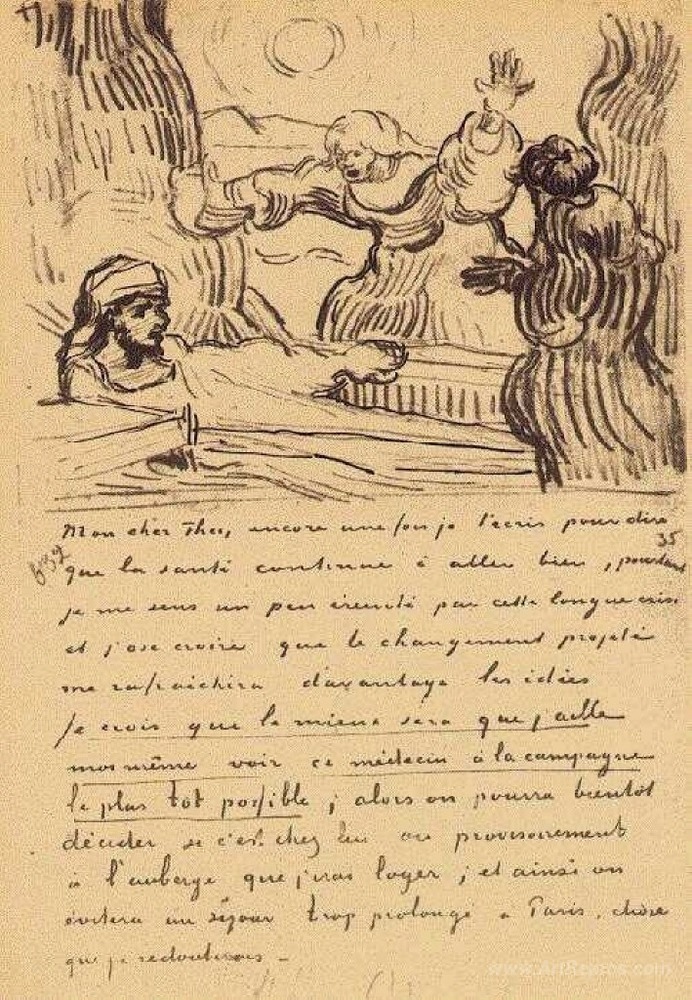 Mon cher Theo, encore une fois je t'écris pour dire
35
639
que la santé continue à aller bien, pourtant
je me sens un peu éreinté par cette longue crise
et j'ose croire que le changement projeté
me rafraichira davantage les idées
Je crois que le mieux sera que j'aille
moi même voir ce médecin à la campagne
le plus tôt possible ; alors on pourra bientôt
décider si c'est chez lui ou provisoirement
à l'auberge que j'irai loger ; et ainsi on
évitera un séjour trop prolongé à Paris, chose
que je redouterais –
www.ArtRepros.com